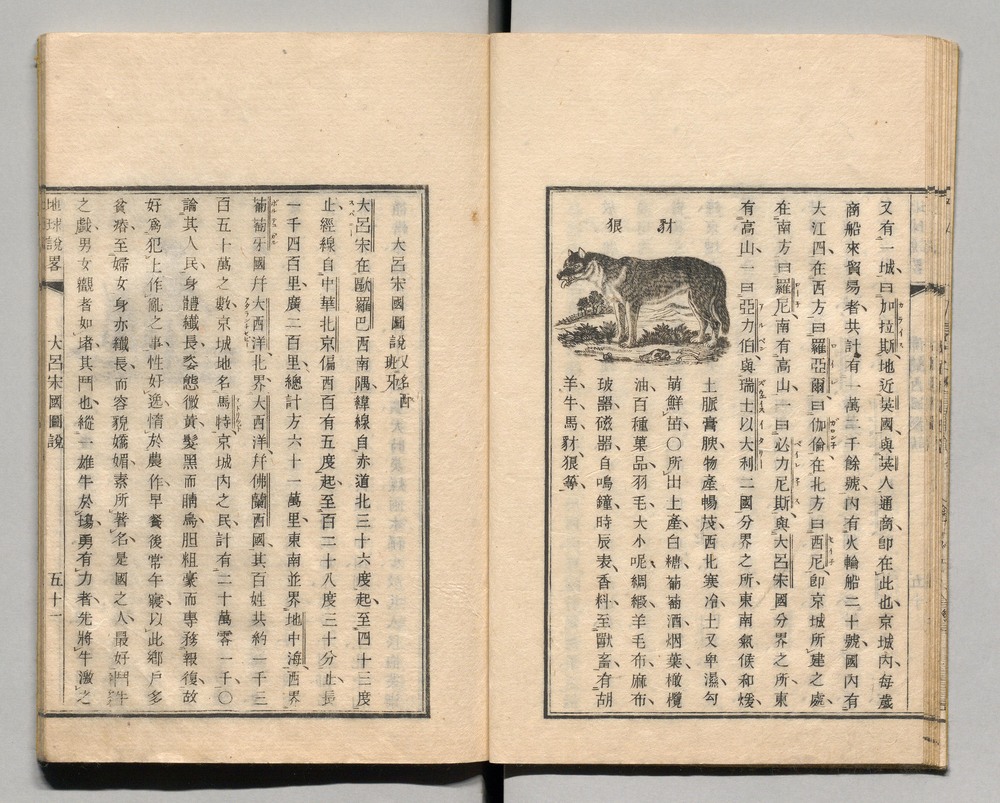 又有一城曰加拉斯地近英國與英人通商卽在此也京城內每歲
商船來貿易者共計有一萬二千餘號內有火輪船二十號國內有
大江四在西方曰羅亞爾曰伽倫在北方曰西尼卽京城所建之處
在南方曰羅尼南有高山一曰必力尼斯與大呂宋國分界之所東
有高山一曰亞力伯與瑞士以大利二國分界之所東南氣候和煖
土脈膏腴物產暢茂西北寒冷土又卑濕勾
萌鮮茁〇所出土產白糖葡萄酒烟葉橄欖
油百種菓品羽毛大小呢綢緞羊毛布麻布
玻璃磁器自鳴鐘時辰表香料至獸畜有胡
羊牛馬豺狠等
豺 狠
大呂宋國圖說 又名西班牙
大呂宋在歐羅巴西南隅緯線自赤道北三十六度起至四十三度
止經線自中華北京偏西百有五度起至百二十八度三十分止長
一千四百里廣二百里總計方六十一萬里東南並界地中海西界
葡萄牙國幷大西洋北界大西洋幷佛蘭西國其百姓共約一千三
百五十萬之數京城地名馬特京城內之民計有二十萬零一千〇
論其人民身體纖長姿態微黃髮黑而睛烏胆粗豪而專務報復故
好爲犯上作亂之事性好逸惰於農作早餐後常午寢以此鄉戶多
貧瘠至婦女身亦纖長而容貌嬌媚素所著名是國之人最好鬥牛
之戲男女觀者如堵其鬥也縱一雄牛於場勇有力者先將牛激之
地球說畧
大呂宋國圖說
五十一